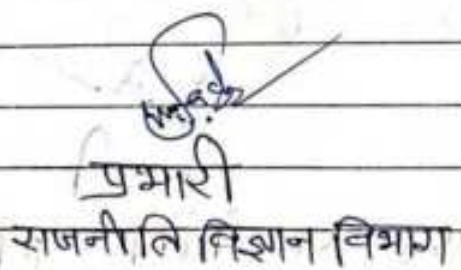 प्रभारी
राजनीति विज्ञान विभाग